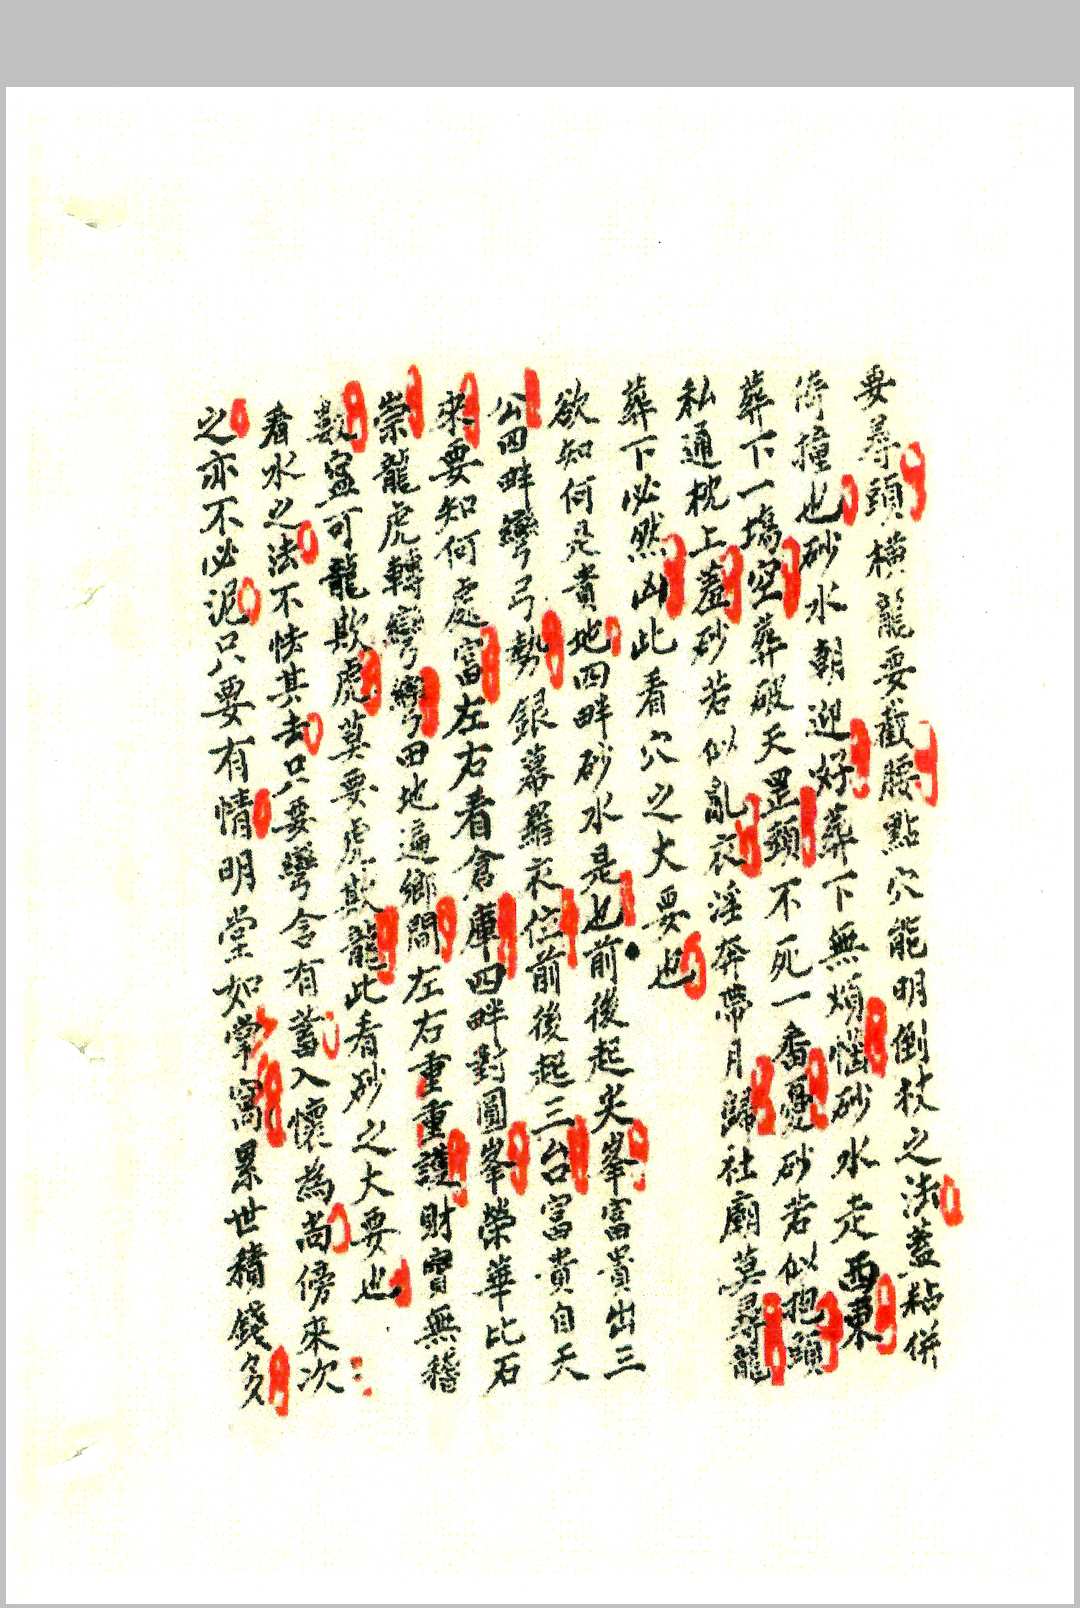 要尋頭橫龍要截腰點穴能明倒杖之法蓋粘併
倚撞也砂水朝迎好葬下無煩惱砂水走西東
葬下一塲空葬破天罡頭不死一番憂砂若似抱頭
私通枕上羞砂若似亂衣淫奔帶月歸社廟莫尋龍
葬下必然凶此看穴之大要也
欲知何是貴地四畔砂水是也前後起尖峯富貴出三
公四畔彎弓勢銀幕羅衣位前後起三台富貴自天
來要知何處富左右看倉庫四畔對圓峯榮華比石
崇龍虎轉彎彎田地遍鄉閭左右重重護財寶無稽
數寧可龍欺虎莫要虎欺龍此看砂之大要也
看水之法不怯其去只要彎含有蓄入懷為尚傍來次
之亦不必泥只要有情明堂如掌窩累世積錢多